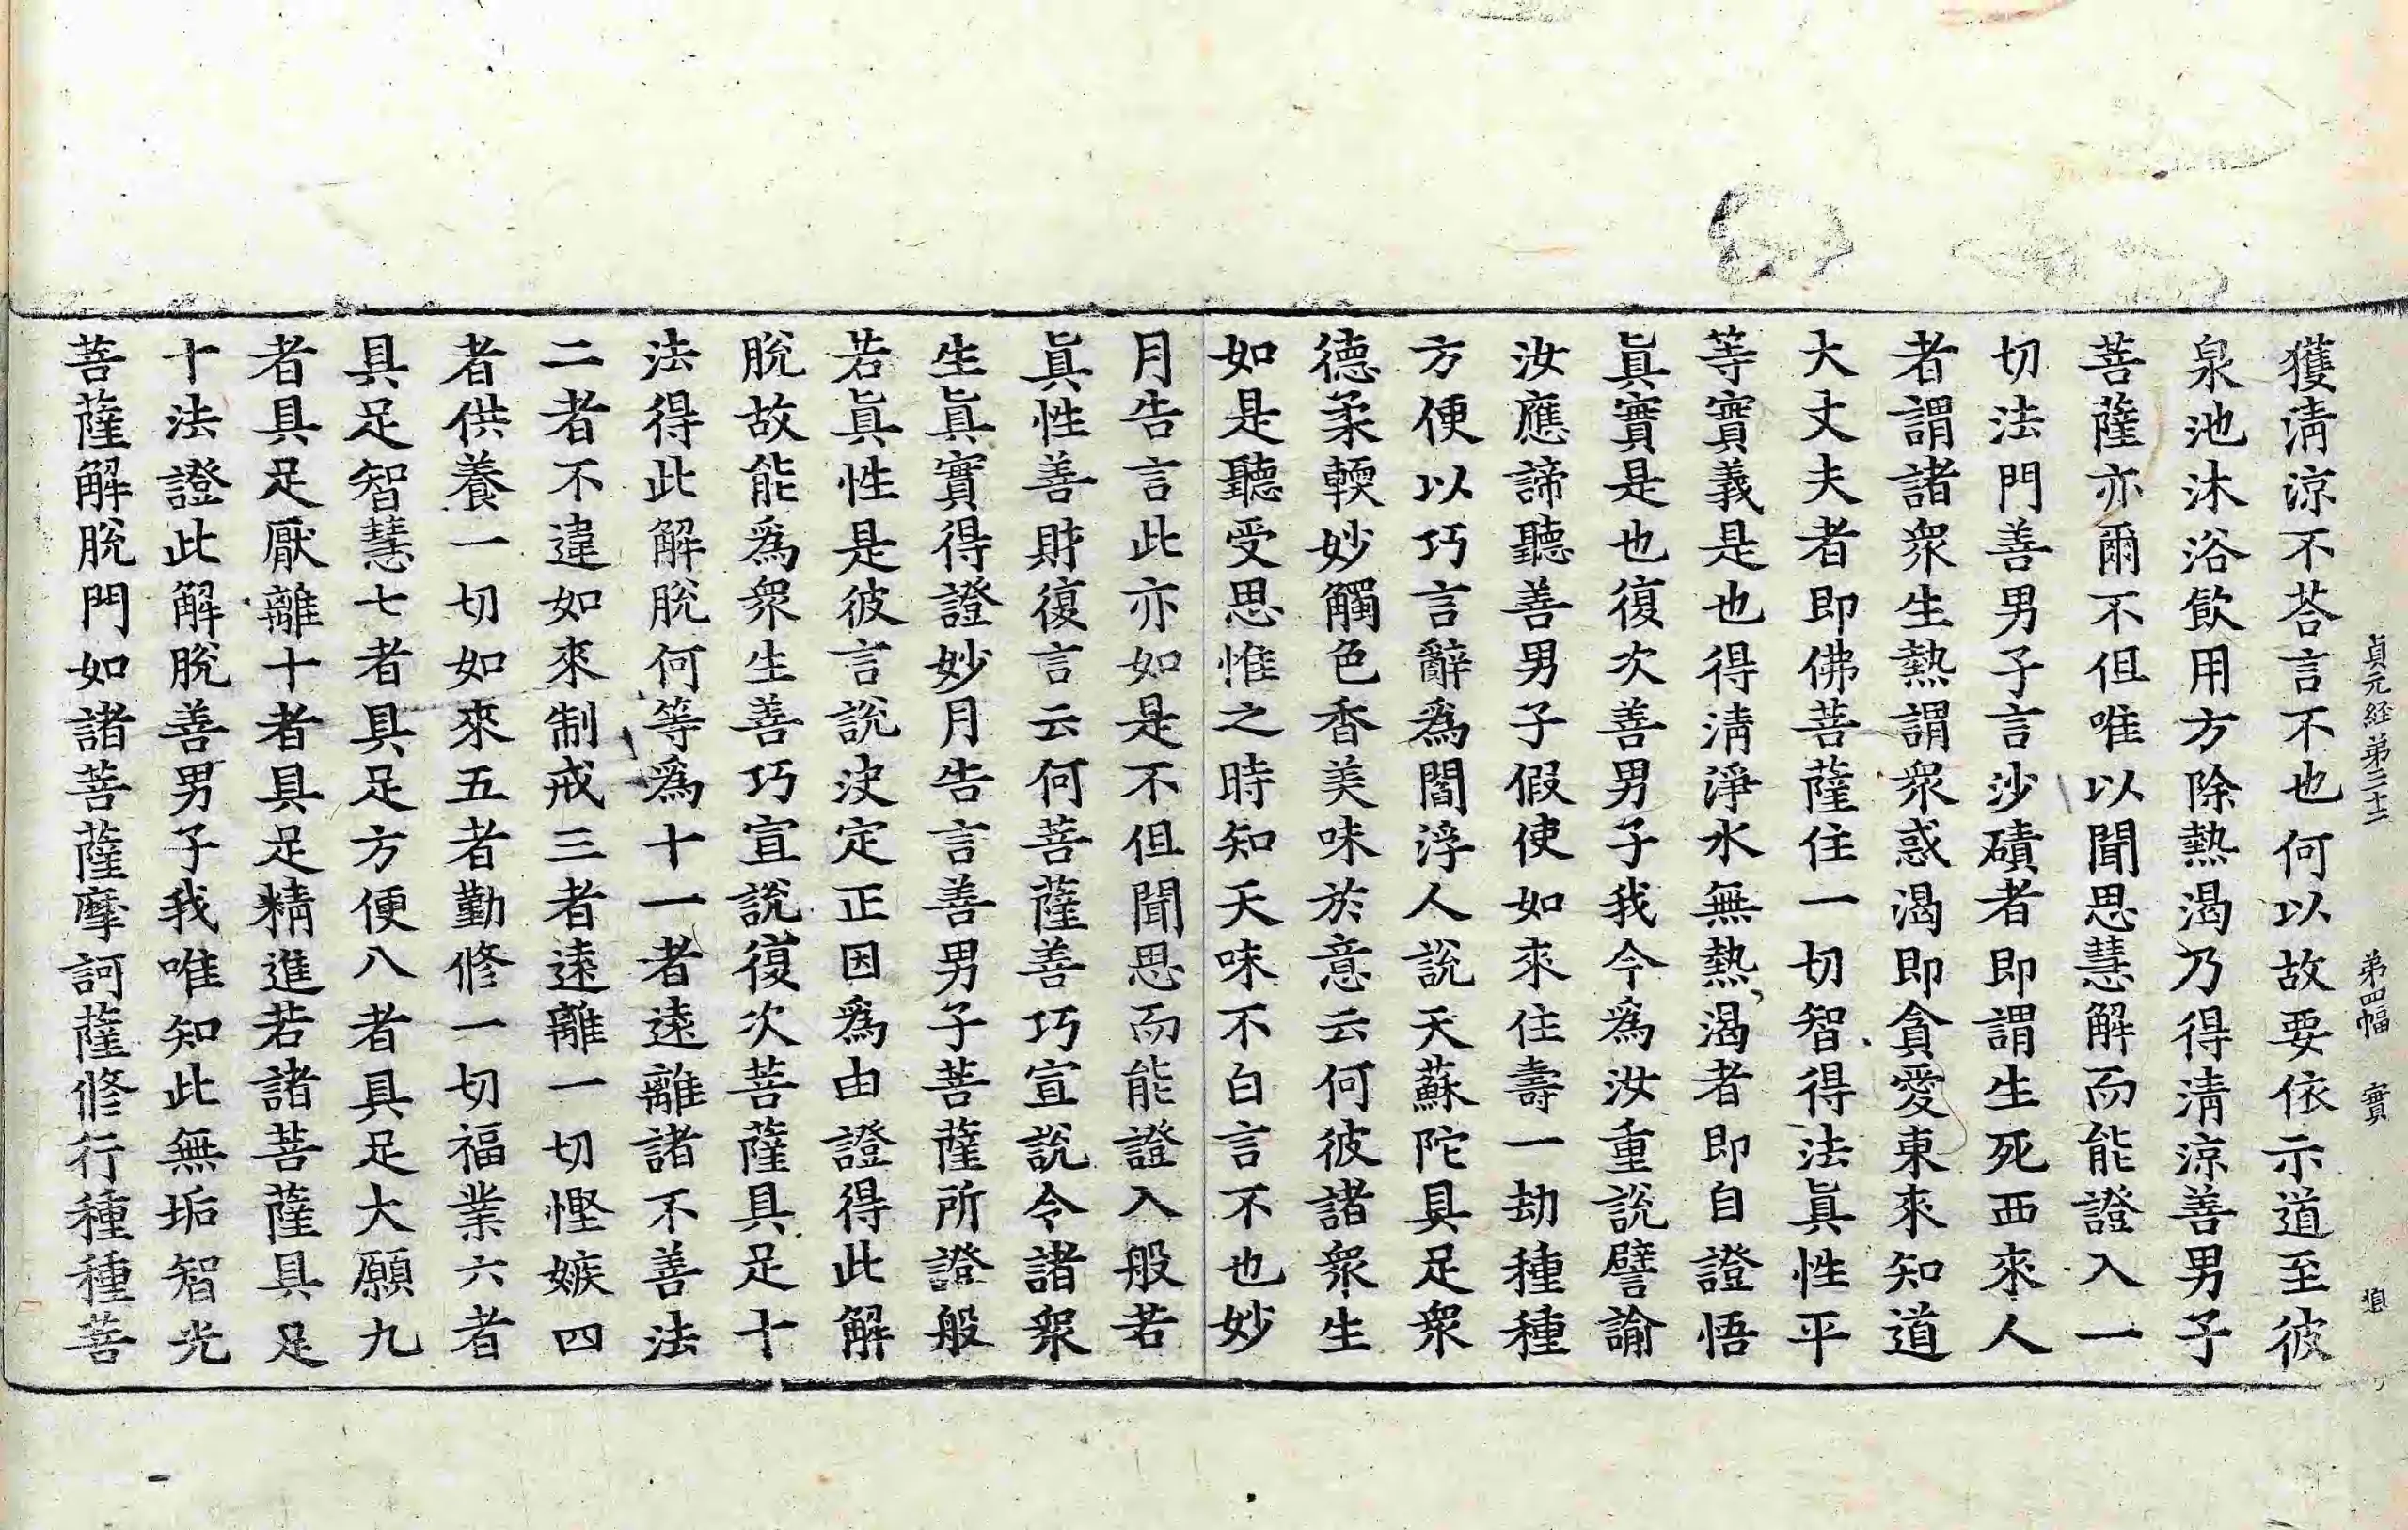 貞元経第三十二 第四幅 實
獲清涼不荅言不也何以故要依示道至彼
泉池沐浴飲用方除熱渴乃得清涼善男子
菩薩亦爾不但唯以聞思慧解而能證入一
切法門善男子言沙磧者即謂生死西來人
者謂諸衆生熱謂衆惑渴即貪愛東來知道
大丈夫者即佛菩薩住一切智得法眞性平
等實義是也得清淨水無熱渴者即自證悟
眞實是也復次善男子我今為汝重說譬諭
汝應諦聽善男子假使如來住壽一劫種種
方便以巧言辭為閻浮人說天蘇陀具足衆
德柔輭妙觸色香美味於意云何彼諸衆生
如是聽受思惟之時知天味不白言不也妙
月告言此亦如是不但聞思而能證入般若
眞性善財復言云何菩薩善巧宣說令諸衆
生眞實得證妙月告言善男子菩薩所證般
若眞性是彼言說決定正因為由證得此解
脫故能為衆生善巧宣說復次菩薩具足十
法得此解脫何等為十一者遠離諸不善法
二者不違如來制戒三者遠離一切慳嫉四
者供養一切如來五者勤修一切福業六者
具足智慧七者具足方便八者具足大願九
者具足厭離十者具足精進若諸菩薩具足
十法證此解脫善男子我唯知此無垢智光
菩薩解脫門如諸菩薩摩訶薩修行種種菩